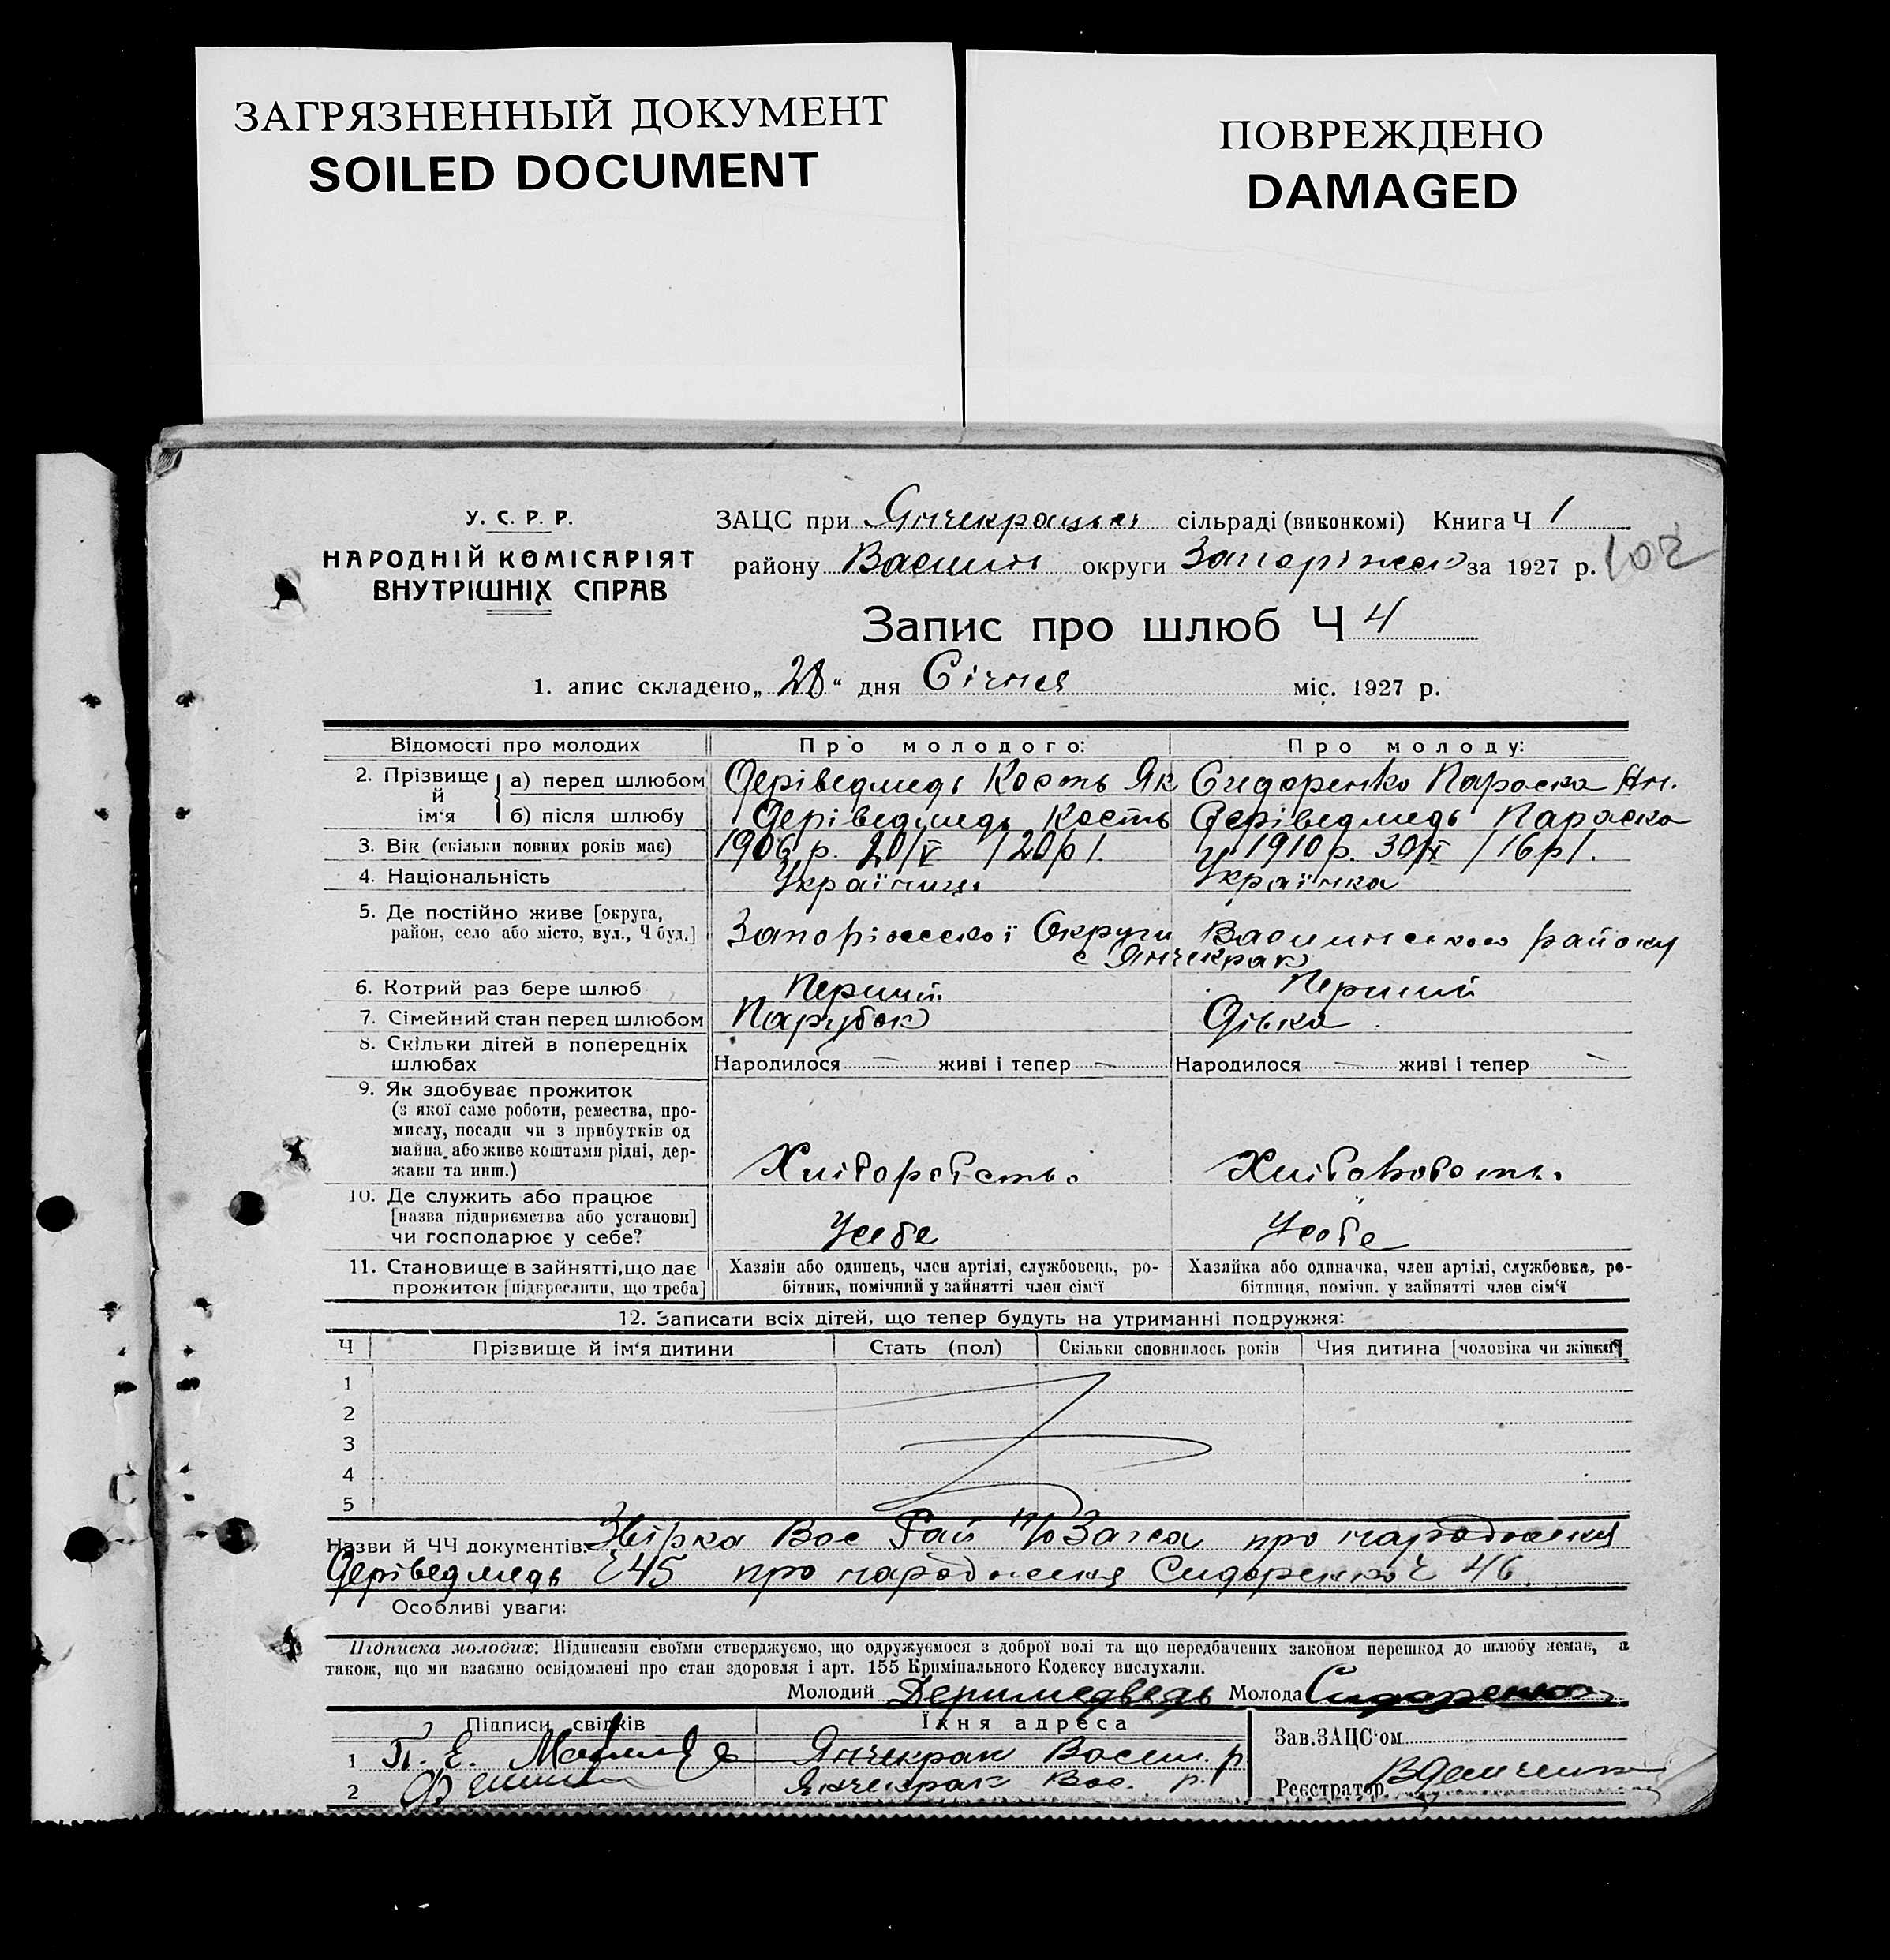 ЗАГРЯЗНЕННЫЙ ДОКУМЕНТ
SOILED DOCUMENT
ПОВРЕЖДЕНО
DAMAGED
У. С. Р. Р.
НАРОДНІЙ КОМІСАРІЯТ
ВНУТРІШНІХ СПРАВ
ЗАЦС при Янчекрацькій сільраді (виконкомі) Книга Ч 1
району Васили округи Запоріжсь за 1927 р.
102
Запис про шлюб Ч 4
1. апис складено „28“ дня Січня міс. 1927 р.
Відомості про молодих Про молодого: Про молоду:
2. Прізвище й ім‘я а) перед шлюбом Деріведмидь Кость Як Сидоренко Параска Ан.
б) після шлюбу Деріведмидь Кость Деріведмидь Параска
3. Вік (скільки повних років має) 1906 р. 20/V /20р/. 1910 р. 30/IX /16р/.
4. Національність Українець Українка
5. Де постійно живе [округа, район, село або місто, вул., Ч буд.] Запоріжської Округи Василівського району
с Янчекрак
6. Котрий раз бере шлюб Перший Перший
7. Сімейний стан перед шлюбом Парубок Дівка
8. Скільки дітей в попередніх шлюбах Народилося — живі і тепер — Народилося — живі і тепер —
9. Як здобуває прожиток
(з якої само роботи, ремества, про-
мислу, посади чи з прибутків од
майна, або живе коштами рідні, дер-
жави та инш.) Хліборобство Хліборобство
10. Де служить або працює
[назва підприємства або установи]
чи господарює у себе? Усебе Усебе
11. Становище в зайнятті, що дає
прожиток [підкреслити, що треба]
Хазяїн або одинець, член артілі, службовець, ро-
бітник, помічний у зайнятті член сім‘ї
Хазяйка або одиначка, член артілі, службовка, ро-
бітниця, помічн. у зайнятті член сім‘ї
12. Записати всіх дітей, що тепер будуть на утриманні подружжя:
Ч Прізвище й ім‘я дитини Стать (пол) Скільки сповнилось років Чия дитина [чоловіка чи жінки]
1
2
3
4
5
Назви й ЧЧ документів: Звірка Вас Рай Загса про народження
Деріведмидь Ч 45 про народження Сидоренко Ч 46
Особливі уваги:
Підписка молодих: Підписами своїми стверджуємо, що одружуємося з доброї волі та що передбачених законом перешкод до шлюбу немає, а
також, що ми взаємно освідомлені про стан здоровля і арт. 155 Кримінального Кодексу вислухали.
Молодий Деримедведь Молода Сидоренко
Підписи свідків Їхня адреса
Зав. ЗАЦС‘ом
1 Т. Е. Янчекрак Васил. р
2 Янчекрак Вас. р.
Реєстратор